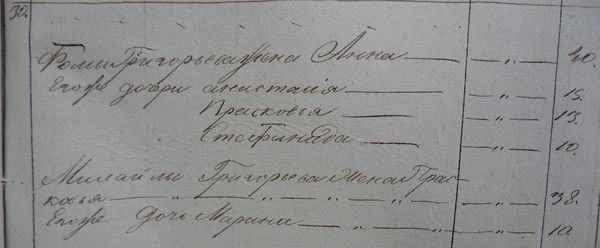 30.
Фомы Григорьева жена Анна — „ — 40.
Егоже дочери анастасія — „ — 15.
Прасковья — „ — 13.
Стефанида — „ — 10
Михайлы Григорьева жена Прас-
ковья — „ — „ — „ — „ — 38.
Егоже Дочь Марина — „ — „ — 10.